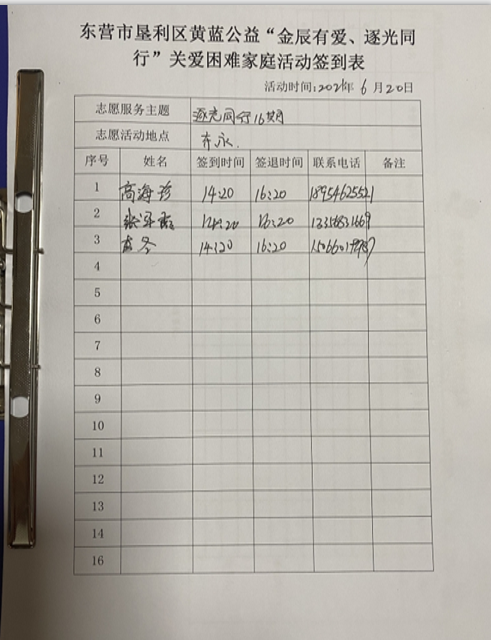 东营市垦利区黄蓝公益“金辰有爱、逐光同
行”关爱困难家庭活动签到表
活动时间:2021年 6月20日
志愿服务主题 逐光同行16期
志愿活动地点
序号 姓名 签到时间 签退时间 联系电话 备注
1 高海珍 14:20 16:20 18954625521
2 14:20 16:20
3 14:20 16:20
4
5
6
7
8
9
10
11
12
13
14
16